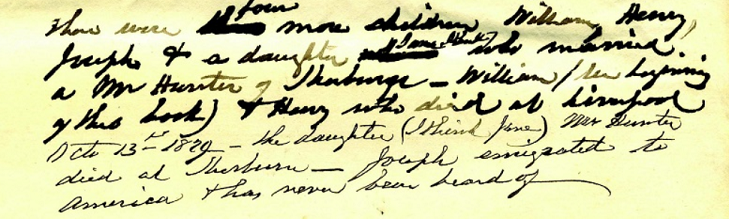 There were four more children William, Henry,
Joseph & a daughter who married
a Mr Hunter of — William (see beginning
of this book) & Henry who died at Liverpool
Octo 13th — the daughter (I think Jane) Mrs Hunter
died at — Joseph emigrated to
America & has never been heard of